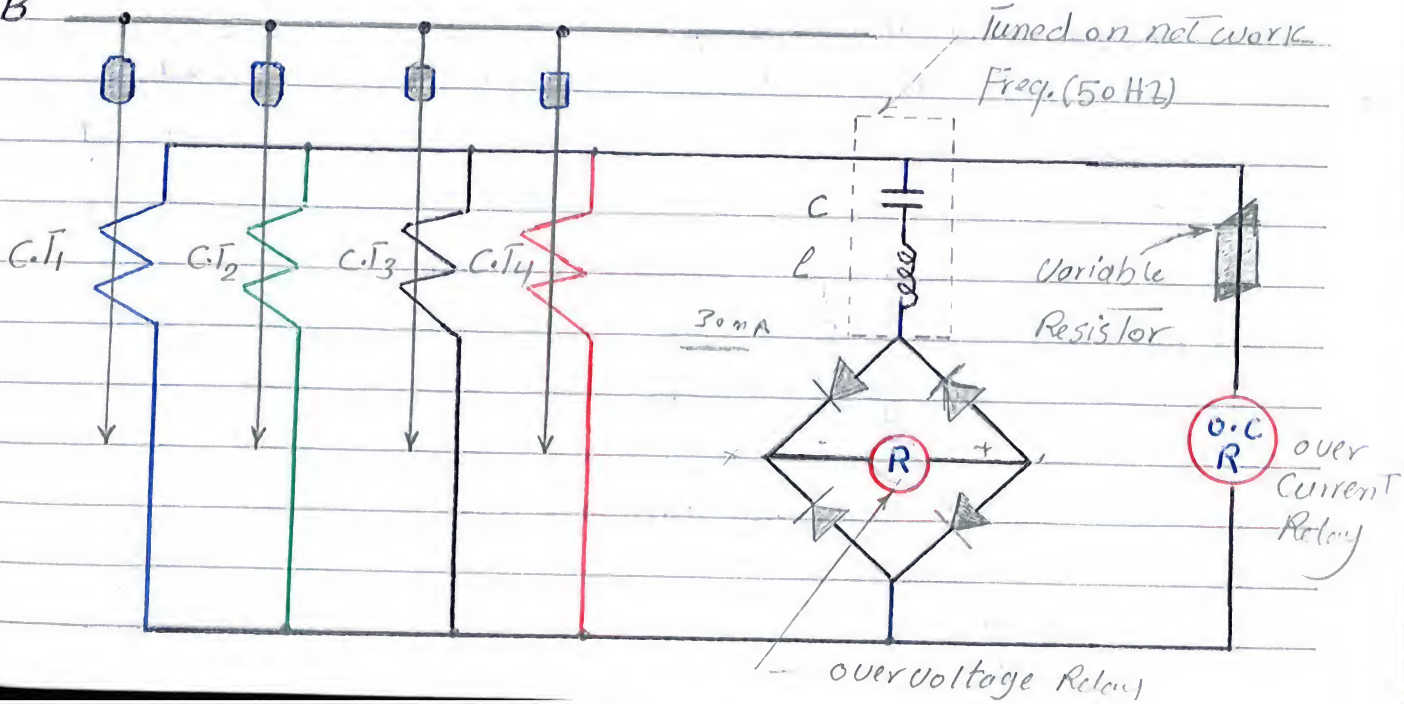 B
Tuned on network
Freq. (50 HZ)
C.T1
C.T2
C.T3
C.T4
C
l
Variable
Resistor
30mA
-
R
+
O.C
R
over
Current
Relay
overvoltage Relay